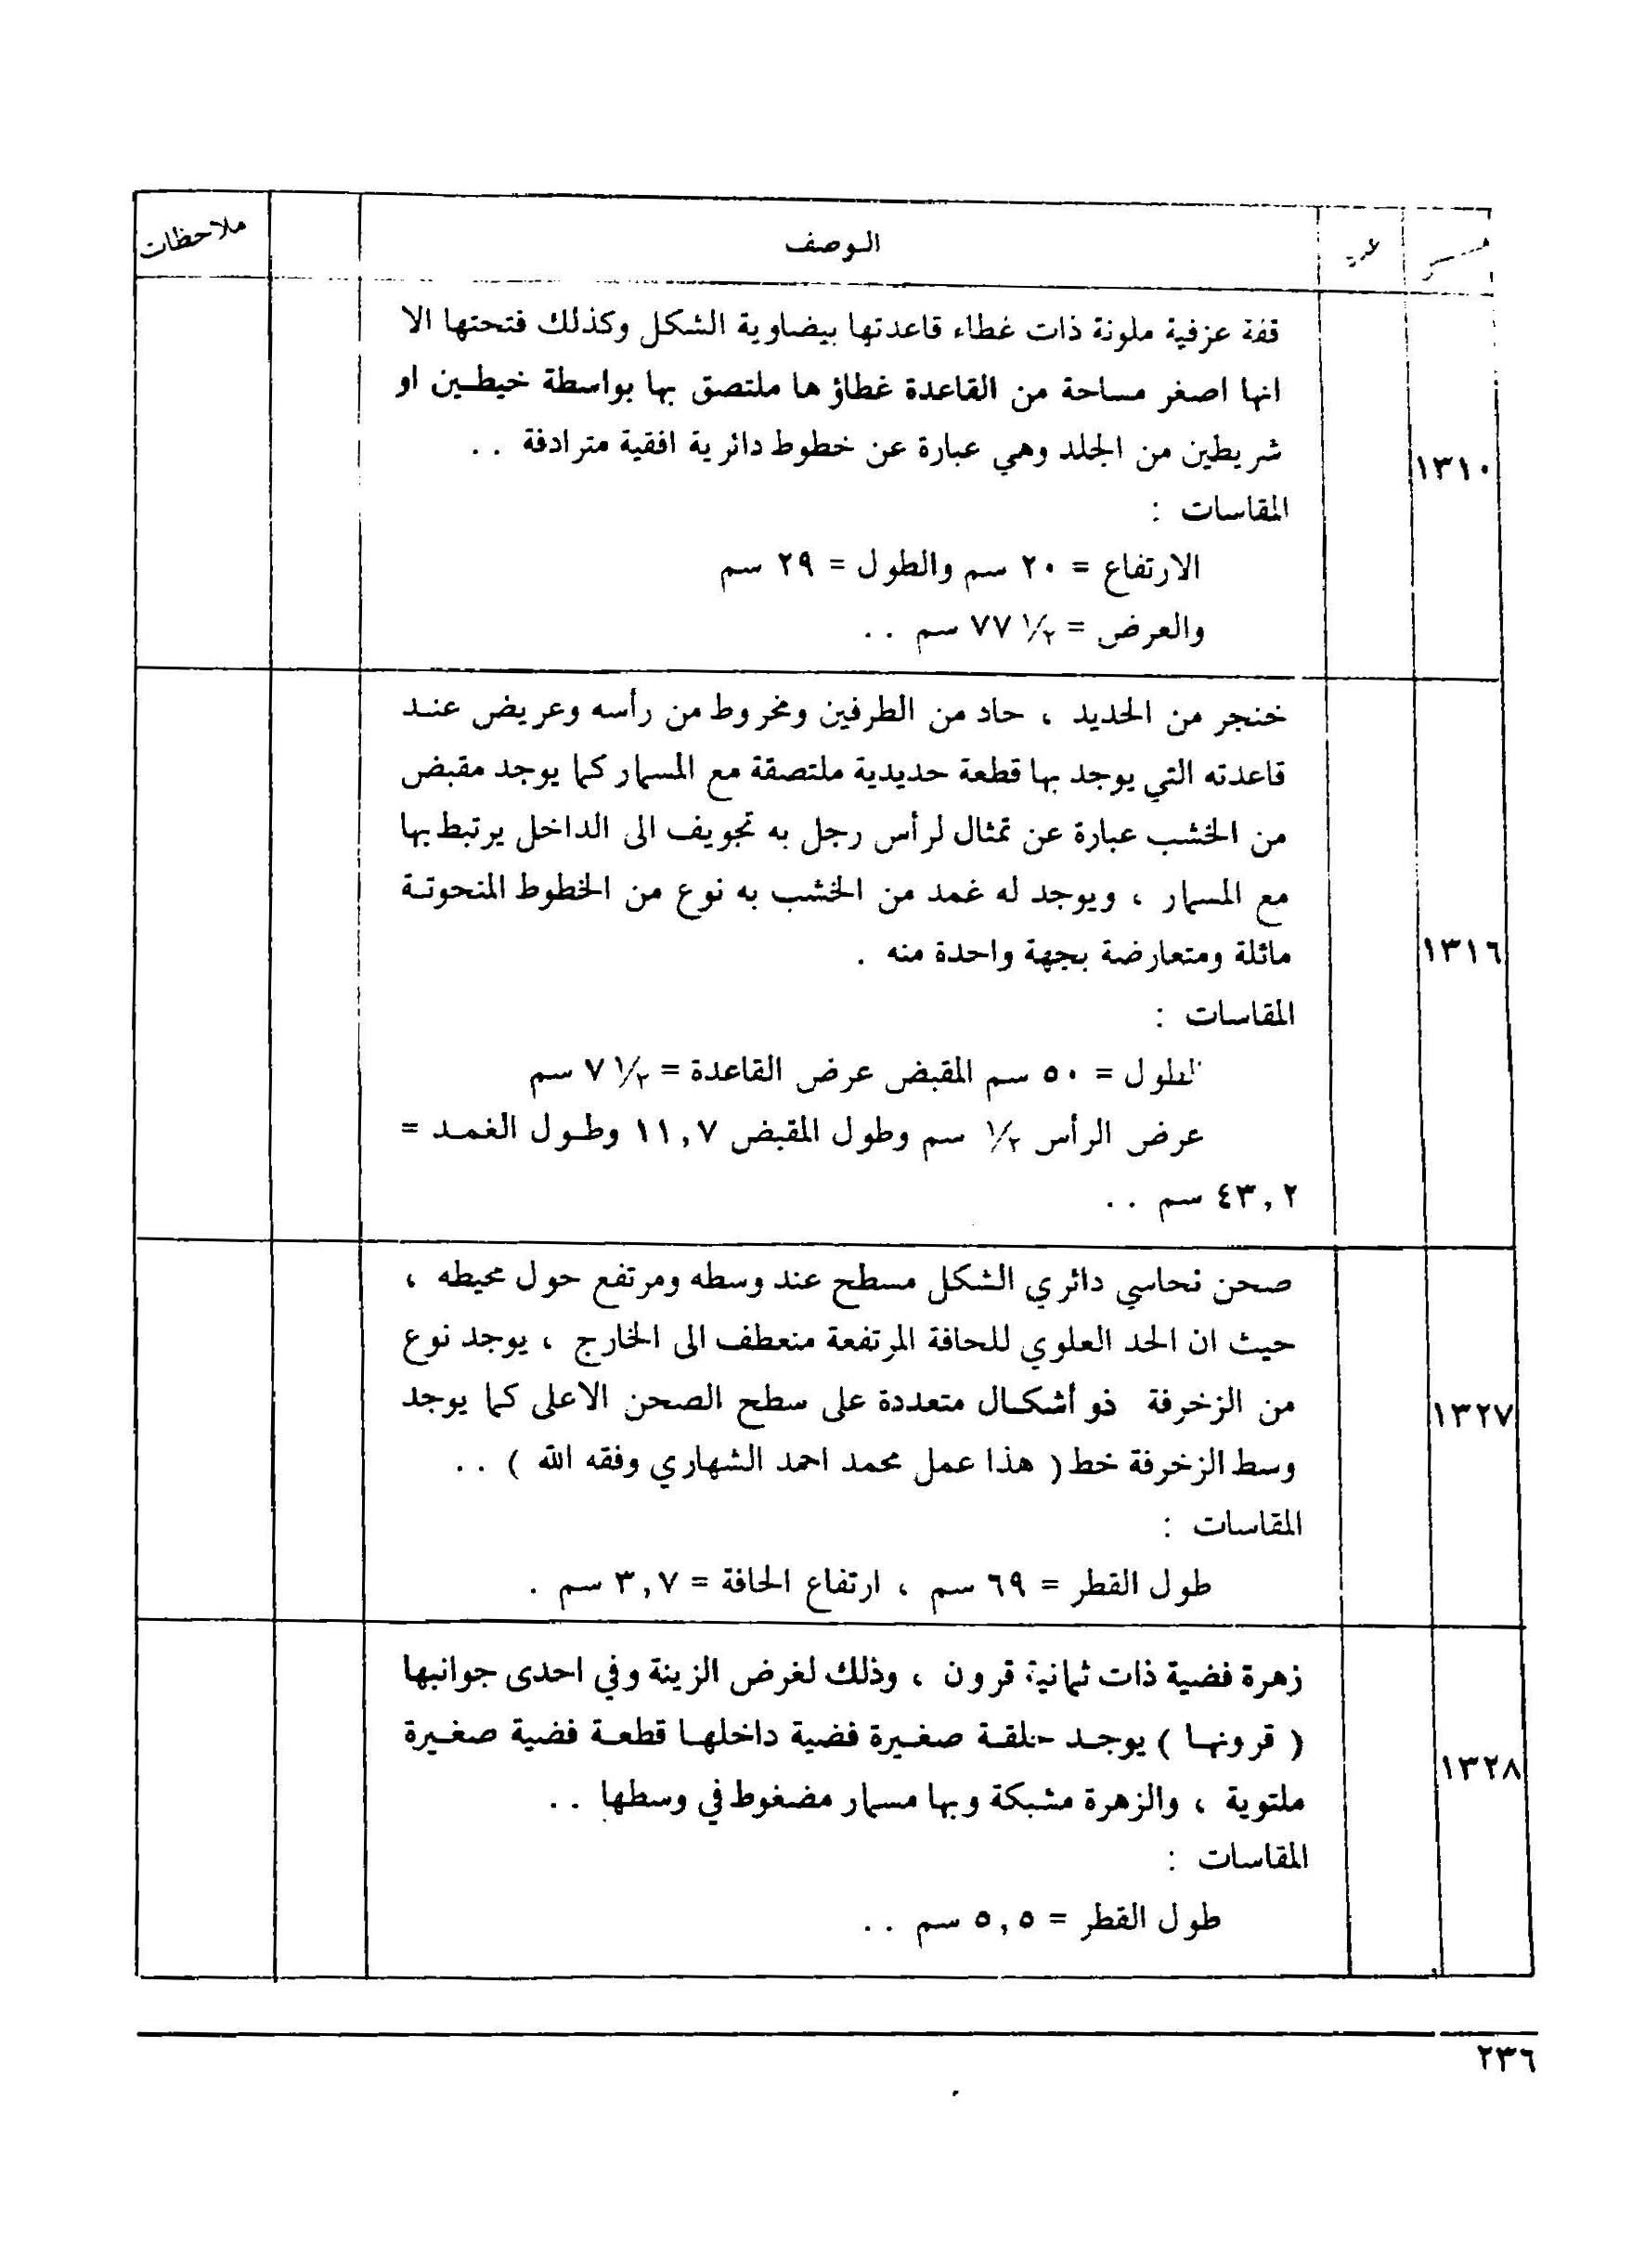 الوصف
ملاحظات
١٣١٠
قفة عزفية ملونة ذات غطاء قاعدتها بيضاوية الشكل وكذلك فتحتها الا
انها اصغر مساحة من القاعدة غطاؤ ها ملتصق بها بواسطة خيطين او
شريطين من الجلد وهي عبارة عن خطوط دائرية افقية مترادفة . .
المقاسات :
الارتفاع = ٢٠ سم والطول = ٢٩ سم
والعرض = ١/٢ ٧٧ سم . .
١٣١٦
خنجر من الحديد ، حاد من الطرفين ومخروط من رأسه وعريض عند
قاعدته التي يوجد بها قطعة حديدية ملتصقة مع المسمار كما يوجد مقبض
من الخشب عبارة عن تمثال لرأس رجل به تجويف الى الداخل يرتبط بها
مع المسمار ، ويوجد له غمد من الخشب به نوع من الخطوط المنحوتة
مائلة ومتعارضة بجهة واحدة منه .
المقاسات :
الطول = ٥٠ سم المقبض عرض القاعدة = ١/٢ ٧ سم
عرض الرأس ١/٢ سم وطول المقبض ١١,٧ وطول الغمد =
٤٣,٢ سم . .
١٣٢٧
صحن نحاسي دائري الشكل مسطح عند وسطه ومرتفع حول محيطه ،
حيث ان الحد العلوي للحافة المرتفعة منعطف الى الخارج ، يوجد نوع
من الزخرفة ذو أشكال متعددة على سطح الصحن الاعلى كما يوجد
وسط الزخرفة خط ( هذا عمل محمد احمد الشهاري وفقه الله ) . .
المقاسات :
طول القطر = ٦٩ سم ، ارتفاع الحافة = ٣,٧ سم .
١٣٢٨
زهرة فضية ذات ثمانية قرون ، وذلك لغرض الزينة وفي احدى جوانبها
( قرونها ) يوجد حلقة صغيرة فضية داخلها قطعة فضية صغيرة
ملتوية ، والزهرة مشبكة وبها مسمار مضغوط في وسطها . .
المقاسات :
طول القطر = ٥,٥ سم . .
٢٣٦